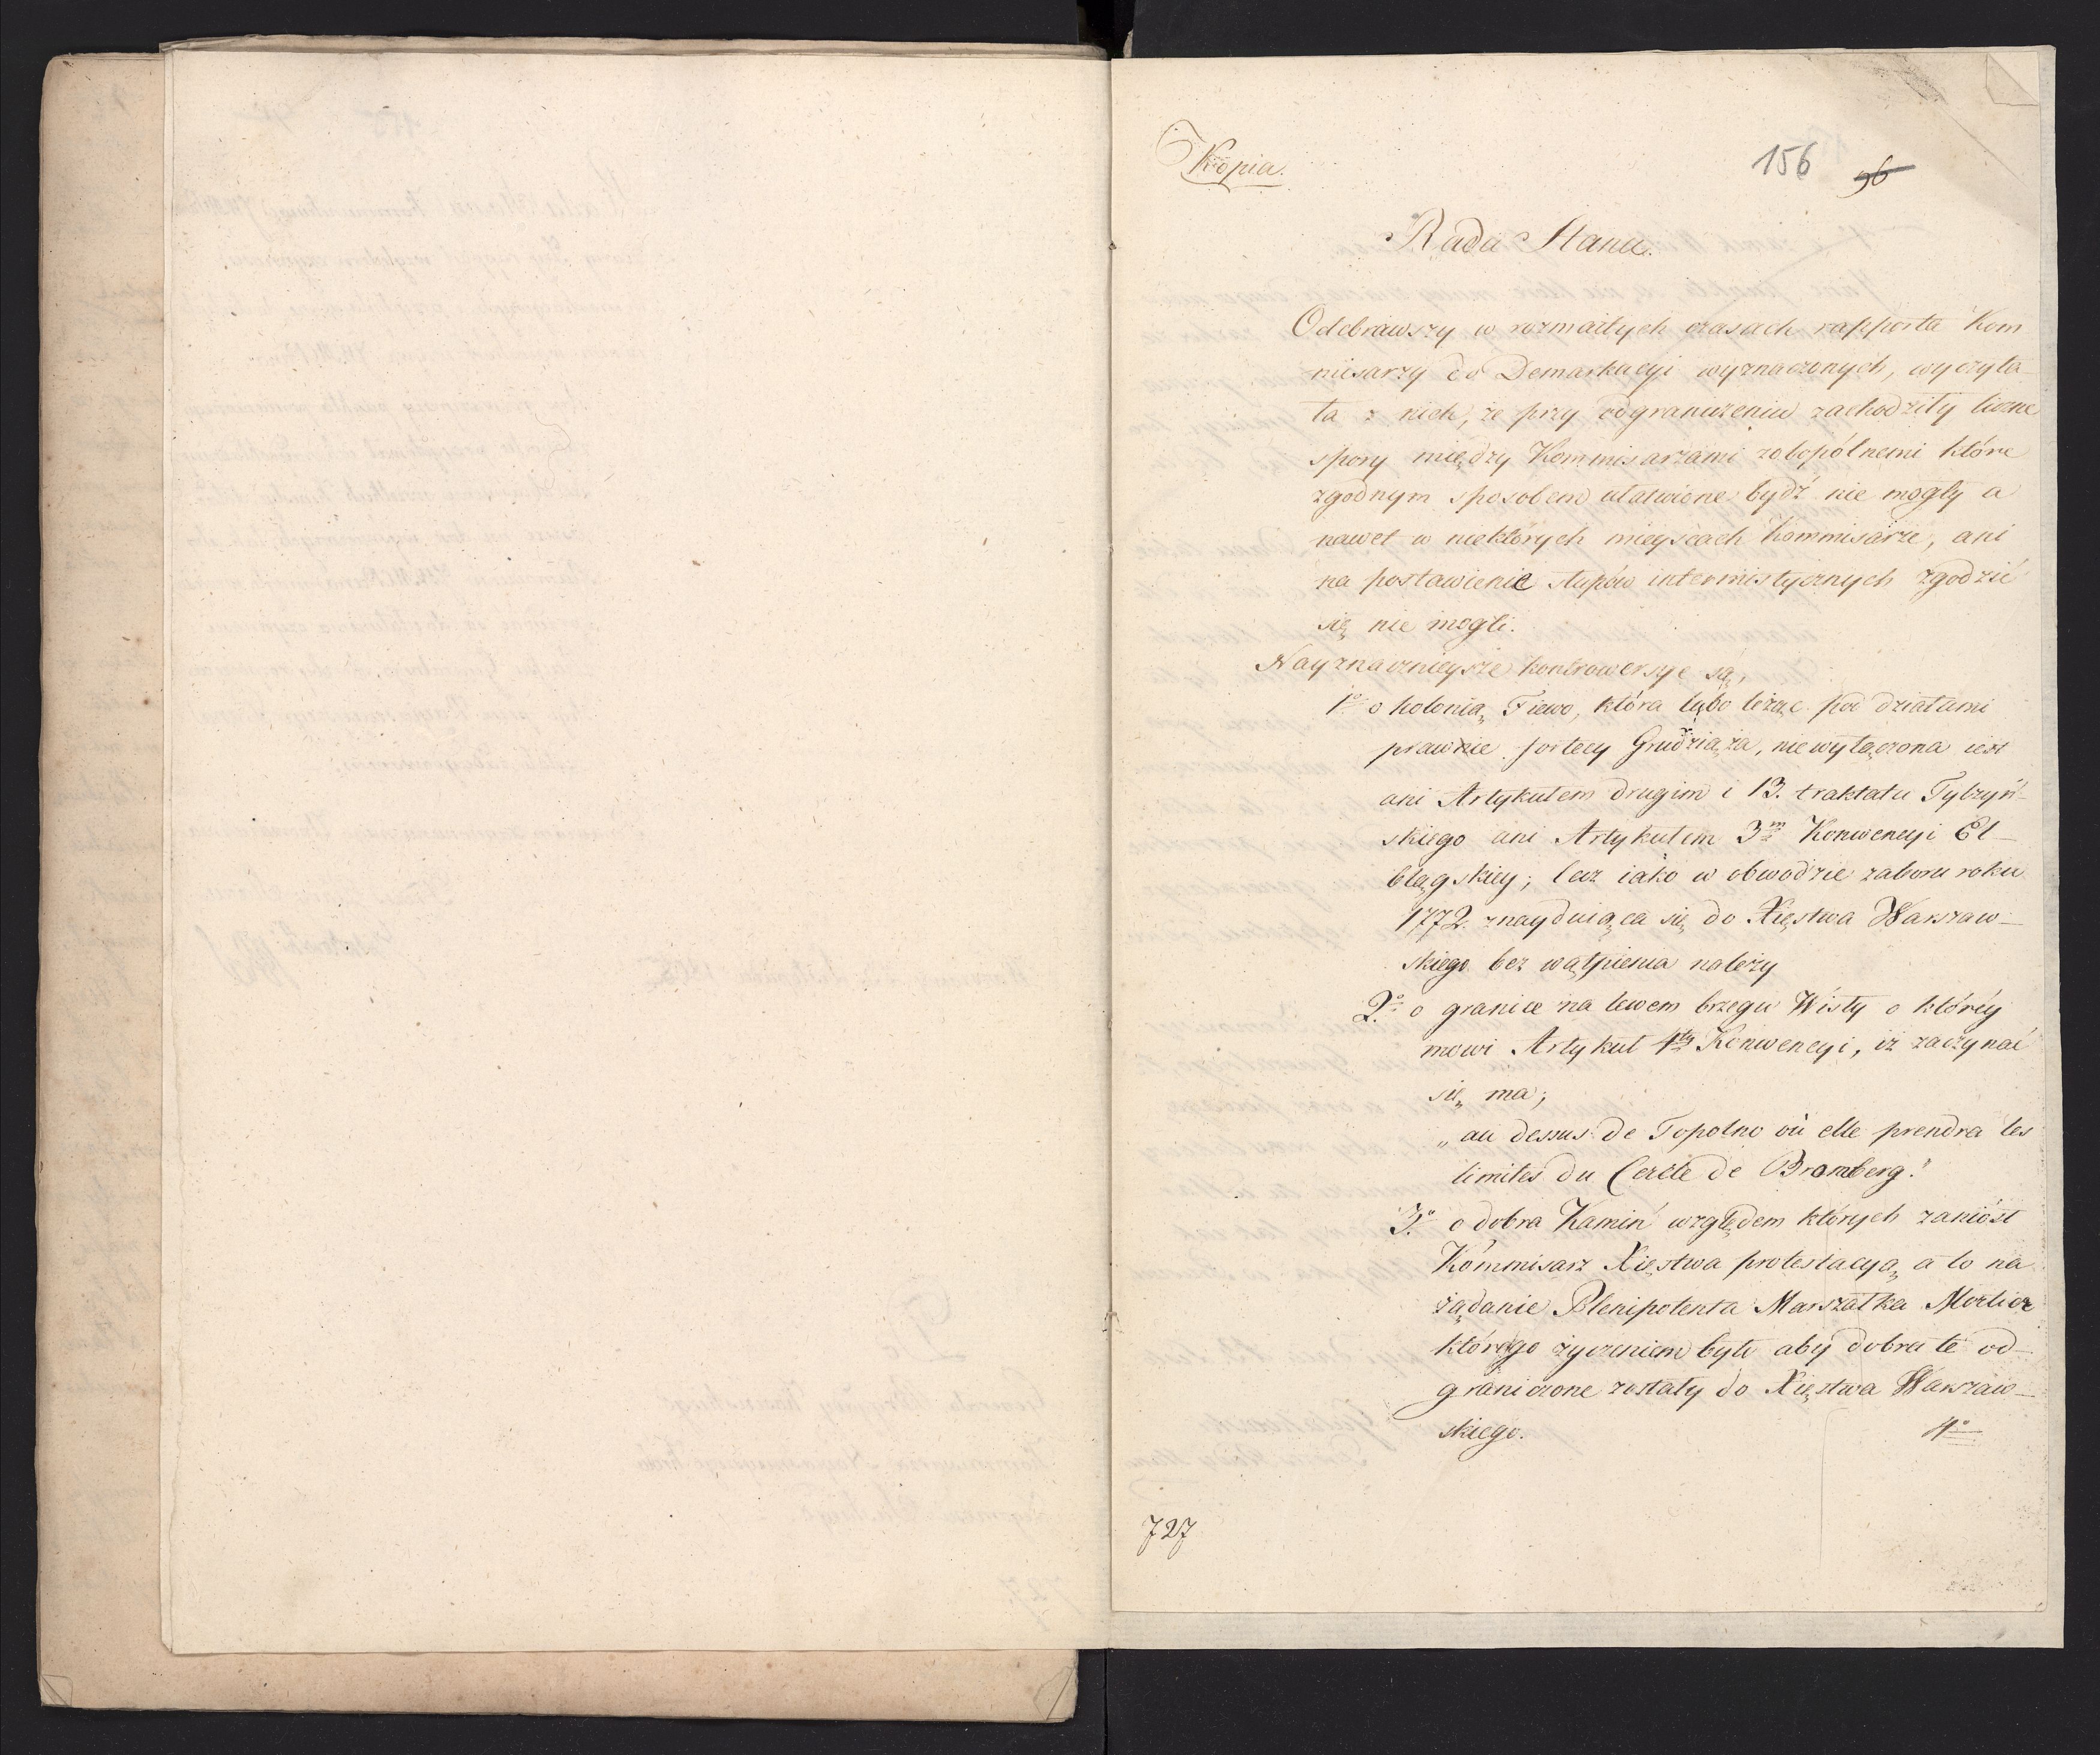 Kopia.
156 96
Rada Stanu.
Odebrawszy w rozmaitych czasach rapporta Kom
missarzy do Demarkacyi wyznaczonych, wyczyta-
ła z nich, że przy odgraniczeniu zachodziły liczne
spory między Kommissarzami zobopólnemi które
zgodnym sposobem ułatwione bydź nie mogły a
nawet w niektórych mieyscach Kommisarze, ani
na postawienie słupów intermistycznych zgodzić
się nie mogli.
Nayznacznieysze kontrowersye są,
1o o kolonią Fiewo, która lubo leżąc pod działami
prawnie fortecy Grudziąża, niewyłączona iest
ani Artykułem drugim i 13. traktatu Tylżyń-
skiego ani Artykułem 3m Konwencyi El-
blągskiey; lecz iako w obwodzie zaboru roku
1772. znayduiąca się do Xięstwa Warszaw-
skiego bez wątpienia należy
2o o granice na lewem brzegu Wisły o któréy
mowi Artykuł 4ty Konwencyi, iż zaczynać
się ma;
„au dessus de Topolno où elle prendra les
limites du Cercle de Bromberg."
3o o dobra Kamiń względem których zaniósł
Kommisarz Xięstwa protestacyą a to na
żądanie Plenipotenta Marszałka Mortier
którego życzeniem było aby dobra te od-
graniczone zostały do Xięstwa Warszaw-
skiego. 4o
727